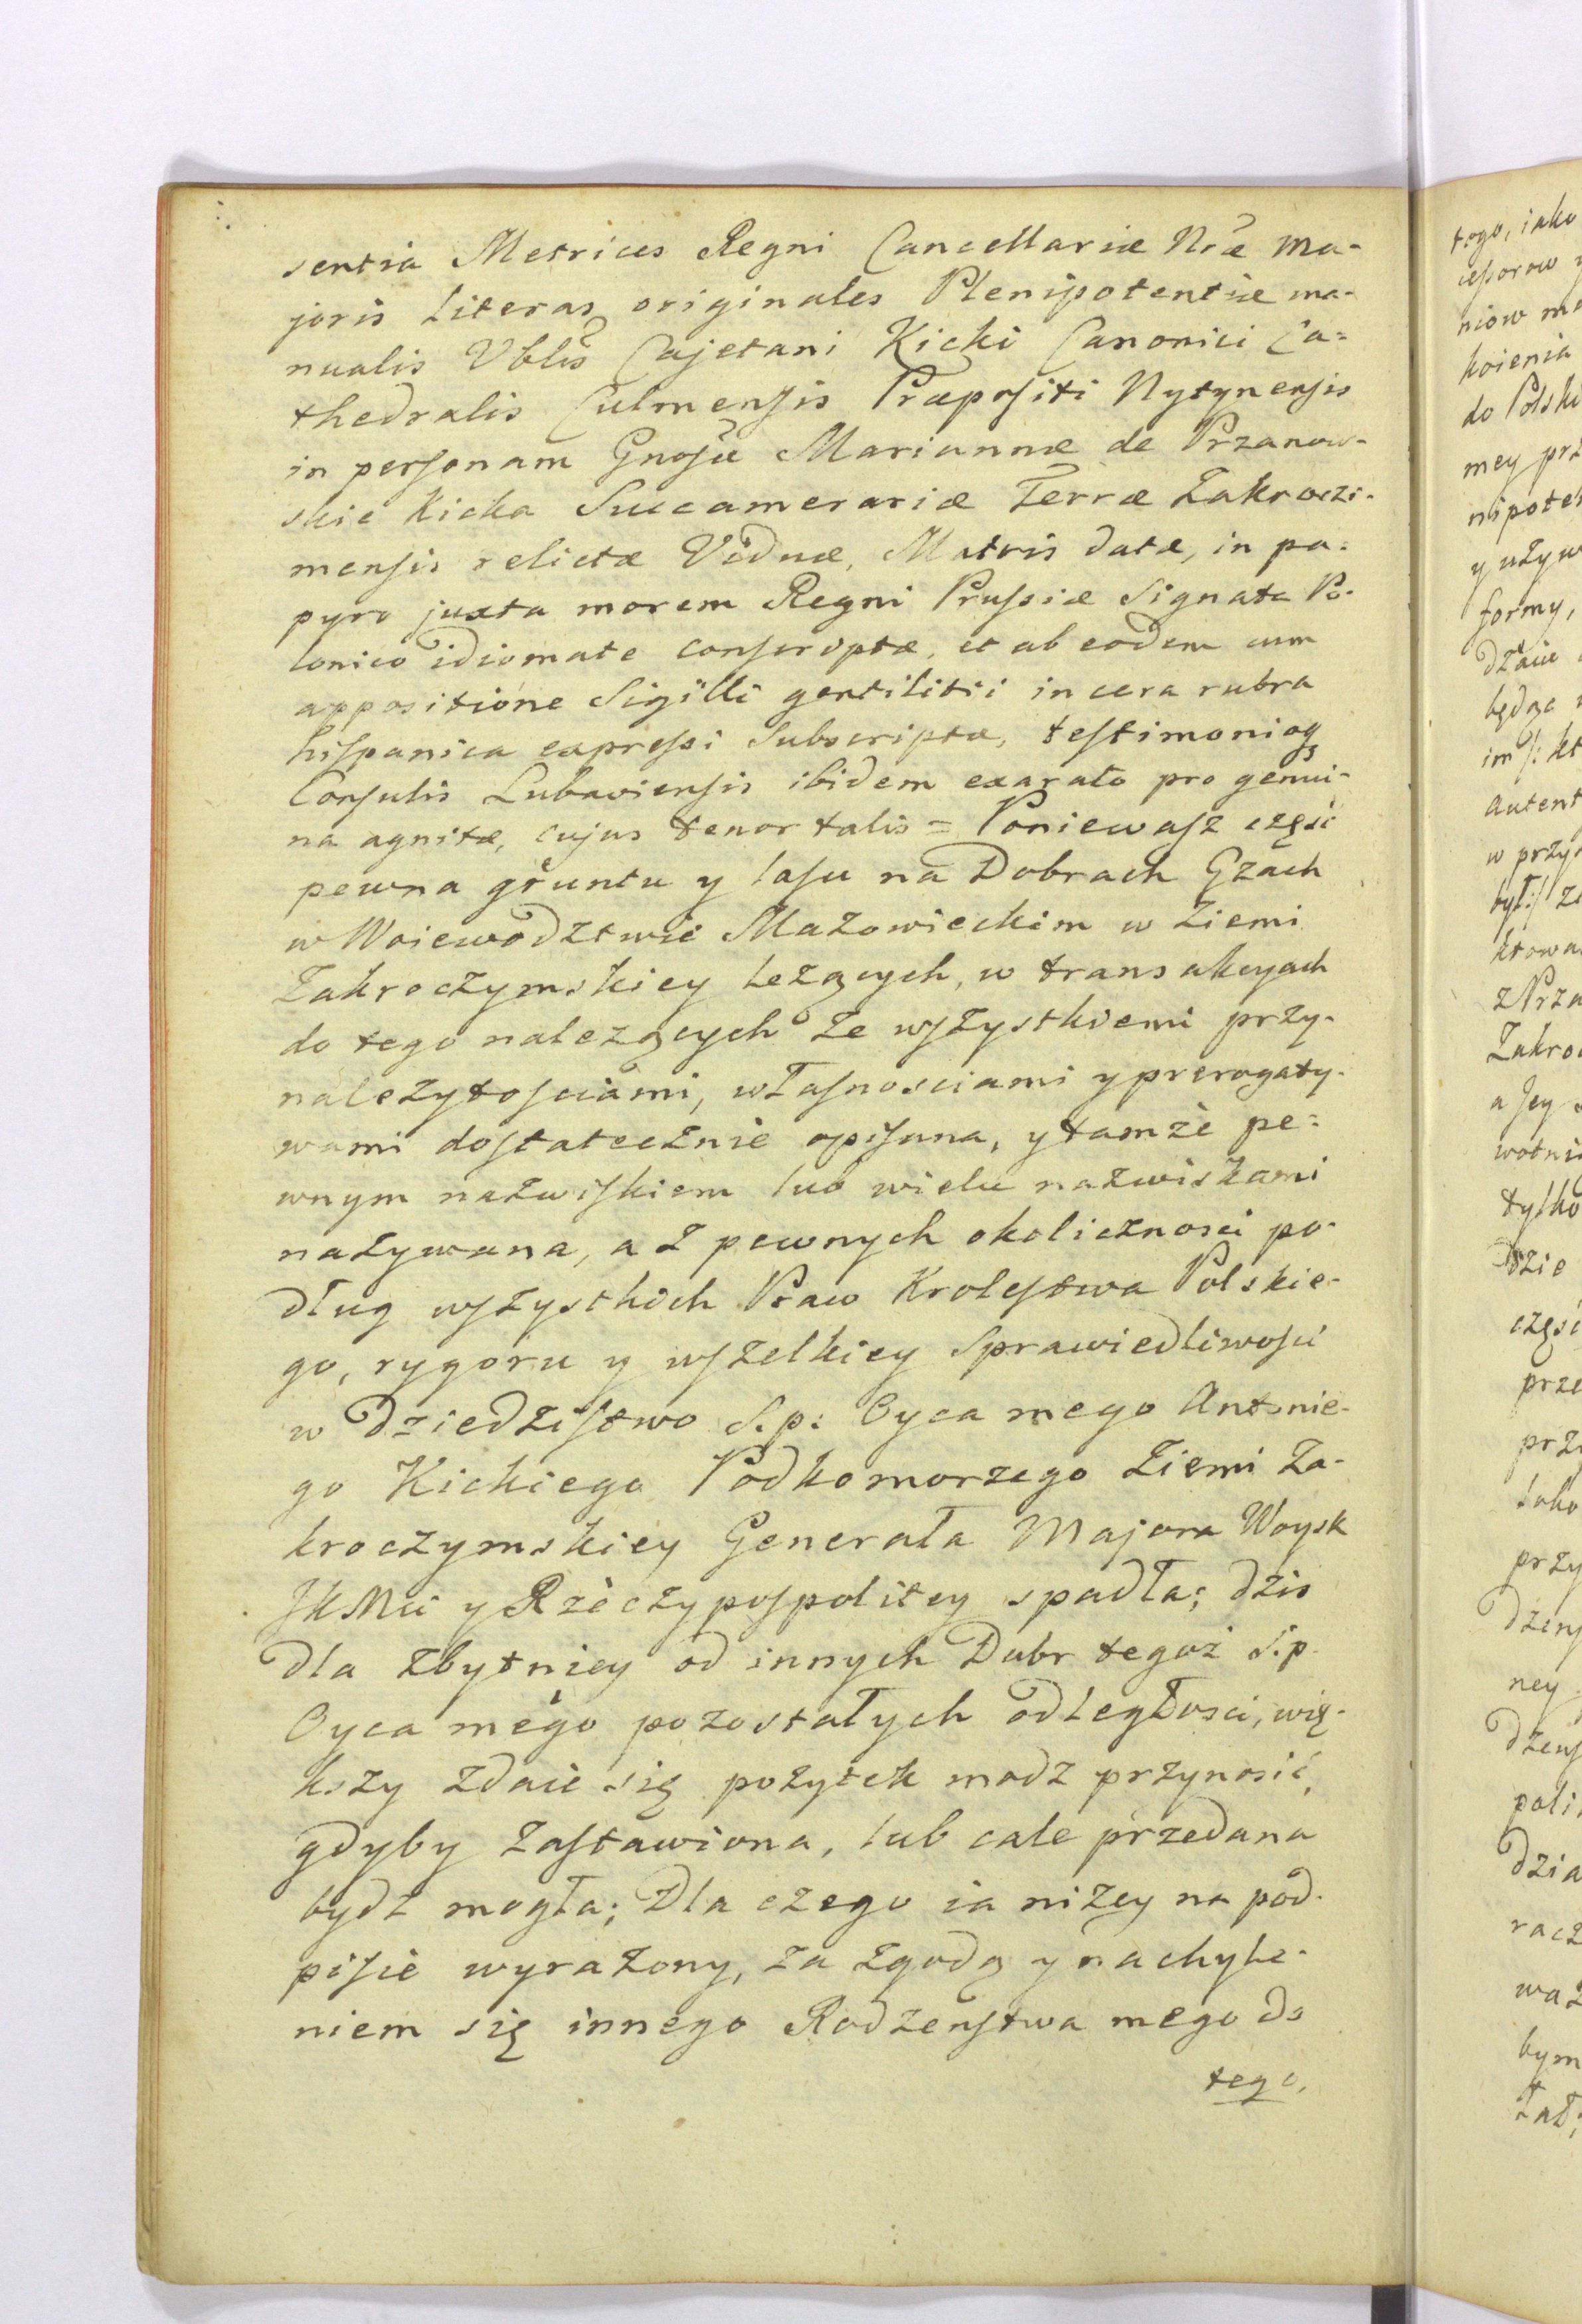 sentia Metrices Regni Cancellariæ Nræ Ma-
joris Literas originales Plenipotentiæ ma-
nualis Vblis Cajetani Kicki Canonici Ca=
thedralis Culmensis Præpositi Nytynensis
in personam Gnosæ Mariannæ de Przanow-
skie Kicka Succamerariæ Terræ Zakroczi-
mensis relictæ Viduæ, Matris datæ, in pa=
pyro juxta morem Regni Prussiæ Signata Po-
lonico idiomate conscriptæ, et ab eodem cum
appositione Sigilli gentilitii in cera rubra
hispanica expressi Subscriptæ, testimonioq
Consulis Lubaviensis ibidem exarato pro genui-
na agnitæ, cujus tenor talis = Poniewasz część
pewna gruntu y lasu na Dobrach Gzach
w Woiewodztwie Mazowieckim w Ziemi
Zakroczymskiey lezących, w transakcyach
do tego nalezących ze wszystkiemi przy-
nalezytosciami, własnosciami y prerogaty-
wami dostatecznie opisana, y tamże pe=
wnym nazwiskiem lub wielu nazwiskami
nazywana, a z pewnych okolicznosci po-
dług wszystkich Praw Krolestwa Polskie-
go, rygoru y wszelkiey Sprawiedliwości
w Dziedzistwo S.p: Oyca mego Antonie-
go Kickiego Podkomorzego Ziemi Za-
kroczymskiey Generała Majora Woysk
JKMci y Rzeczypospolitey spadła; dzis
dla zbytniey od innych Dobr tegoż S.p.
Oyca mego pozostałych odległosci, wię-
kszy zdaie się pozytek modz przynosić,
gdyby zastawiona, lub cale przedana
bydz mogła; Dla czego ia niżey na pod-
pisie wyrazony, za zgodą y nachyle-
niem się innego Rodzeństwa mego do
tego,
togo, iako
cessorow y
niow
koienia
do Polski
mey prz
nipoten
y uzyw
formy,
dzaie
będąc
im /: kt
autent
w przy
był:/ za
ktowa
z Prza
Zakro
a Jey
wotni
tylko
dzie
część
prze
prz
lako
przy
dzeńs
ney
dzeńs
poli
dzia
racz
waz
bym